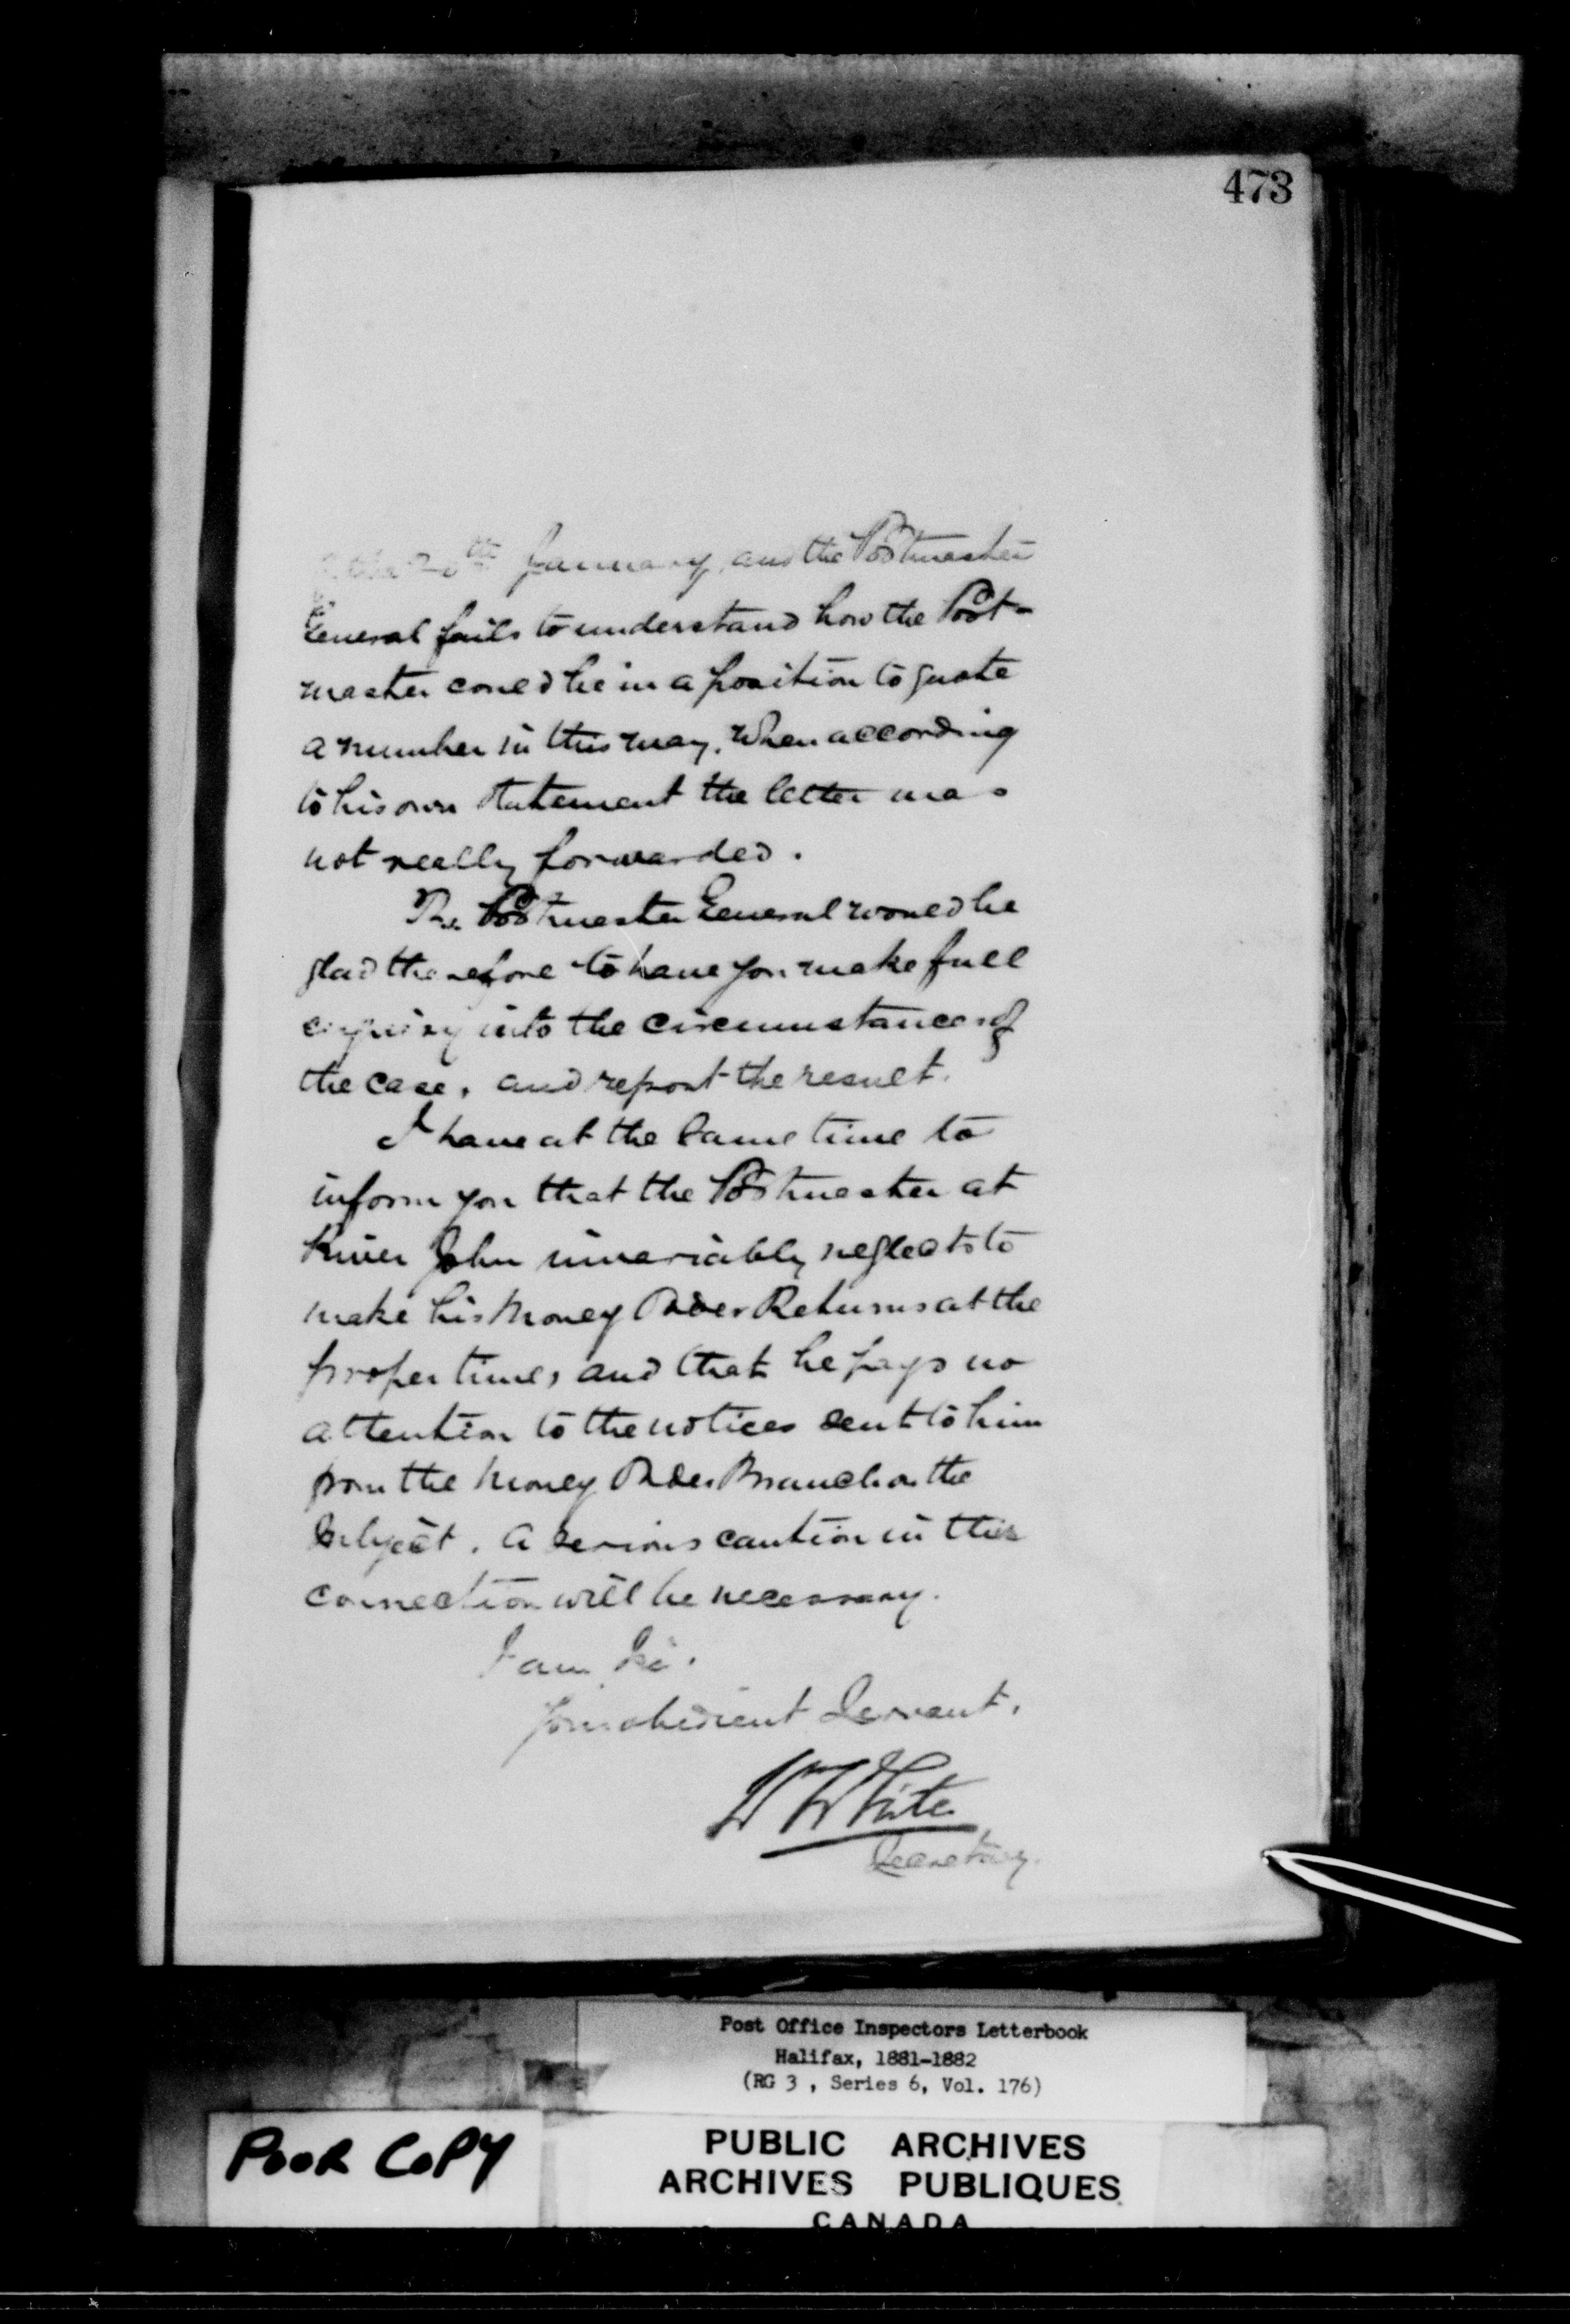 473
the 20th January, and the Postmaster
General fails to understand how the Post-
master could be in a position to quote
a number in this way, when according
to his own statement the letter was
not really forwarded.
The Postmaster General would be
glad therefore to have you make full
enquiry into the circumstances of
the case, and report the result.
I have at the same time to
inform you that the Postmaster at
River John invariably neglects to
make his Money Order Returns at the
proper time, and that he pays no
attention to the notices sent to him
from the Money Order Branch on the
subject. A serious caution in this
connection will be necessary.
I am, &c.
Your obedient Servant,
W White
Secretary.
Post Office Inspectors Letterbook
Halifax, 1881-1882
(RG 3 , Series 6, Vol. 176)
POOR COPY
PUBLIC ARCHIVES
ARCHIVES PUBLIQUES
CANADA